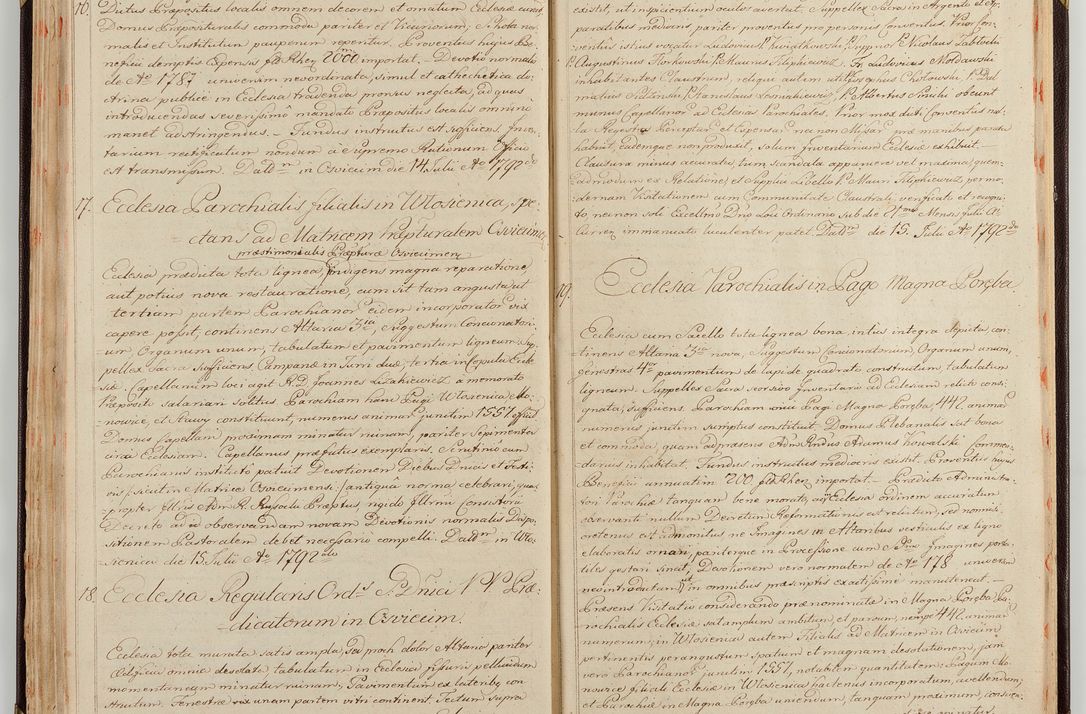 16. Dictus Præpositus localis omnem decorem et ornatum Ecclesiæ curat
Domus Præpositurales commodæ pariter et Vicariorum, Schola nor-
malis et Institutum pauperum repertur. Proventus hujus Be-
neficii demptis Expensis fl Rhen 2000 important. – Devotio normalis
de Aº 1787 universim neoordinata, simul et cathechetica do-
ctrina publice in Ecclesia tradenda prorsus neglecta, ad quas
introducendas severissimo mandato Præpositus localis omnino
manet adstringendus. – Fundus instructus est sufficiens. Inven-
tarium rectificatum nondum à supremo Rationum Officio
est transmissum. Datum in Osviecim die 14 Julii Aº 1792do
17. Ecclesia Parochialis filialis in Wlosienica, spe-
ctans ad Matricem Præposituralem Osviecim
præstimonialis Præpturæ Osviecimen
Ecclesia prædicta tota lignea, indigens magna reparatione,
aut potius nova restauratione, cum sit tam angusta, ut
tertiam partem Parochianor eidem incorporator vix
capere possit, continens Altaria 3ia, suggestum Concionatori-
um, Organum unum, tabulatum et pavimentum ligneum. Sup-
pellex sacra sufficiens. Campanæ in Turri duæ, tertia in Copula Eccle-
siæ. Capellanum loci agit R.D. Joannes a memorato
Præposit salariari solitus. Parochiam hanc Pagi Wlosienica, Mo-
nowice, et Stawy constituunt, numerus animar junctim 1557 efficit
Domus Capellani proximam minatur ruinam, pariter Sepimenta
circa Ecclesiam. Capellanus præfatus exemplaris. Scrutinio cum
Parochianis instituto patuit Devotionem Diebus Dnicis et Festi-
vis /:sicuti in Matrice Osviecimensi:/ antiqua norma celebrari, qua-
propter Illris Adm R. Præptus, rigido Illrmi Consistorii
Decreto ad observandam novam Devotionis normalis Dispo-
sitionem Pastoralem debet necessario compelli. Datum in Wlo-
sienica die 15 Julii Aº 1792do
18. Ecclesia Regularis Ordis S. Dnici P P Præ-
dicatorum in Osviecim.
Ecclesia tota murata satis ampla, sed proh dolor Altaria pariter
Ædificia omnia desolata, tabulatum in Ecclesia fissuris pellucidum
momentaneam minatur ruinam, Pavimentum ex lateribus con-
structum. Fenestræ vix unam partem vitri continent. Tectum supra
existit, ut inspicientium oculos avertat. Suppellex Sacra in Argento et ap-
paratibus mediocris, pariter proventus pro persolvis Conventus. Prior Con-
ventus istius vocatur Ludovicus Kwiatkowski, Suppnor P. Nicolaus
P. Augustinus P. Maurus Filipkiewicz. Fr. Ludovicus Moldawski
inhabitantes Claustrum, reliqui autem utpote Josephus Cholowski, P. Dal-
matius P. Stanislaus P. Albertus obeunt
munus Capellanor ad Ecclesias Parochiales. Prior mox dicti Conventus nul-
la Regestra Perceptar et Expensar nec non Missar præ manibus parata
habuit, eademque non produxit, solum Inventarium Ecclesiæ exhibuit. –
Clausura minus accurata, tum scandala apparuere vel maxima, quem-
admodum ex Relatione, et Supplici Libello P. Mauri Filipkiewicz, permo-
dernam Visitationem cum Communitate Claustrali verificati et recogni-
to, nec non soli Excellmo Dno Loci Ordinario sub die 21ma Mensis Julii A
Currex immanuato luculenter patet. Datum die 15. Julii Aº 1792do
19. Ecclesia Parochialis in Pago Magna Poręba.
Ecclesia cum Sacello tota lignea bona, intus integra depicta, con-
tinens Altaria 3ia nova, Suggestum Concionatorium, Organum unum,
fenestras 4r pavimentum de lapide quadrato constructum tabulatum
ligneum. Suppellex Sacra seorsivo Inventario ad Ecclesiam relicto consi-
gnata, sufficiens. Parochiam unius Pagi Magna Poręba, 442. animar
numerus junctim sumptus constituit. Domus Plebanalis sat bona
et commoda, quam ad præsens Adm Rndus Adamus Kowalski Commen-
darius inhabitat. Fundus instructus mediocris existit. Proventus hujus
Beneficii annuatim 200 fl Rhen important. – Prædicto Administra-
tori Parochiæ tanquam bene morato, ac Ecclesiæ ordinem accuratum
observanti nullum Decretum Reformationis est relictum, sed nonnisi
oretenus est admonitus, ne Imagines in Altaribus vestibulis ex ligno
elaboratis ornari, pariterque in Processione cum Ssmo Imagines porta-
tiles gestari sinat, Devotionem vero normalem de Aº 178 universim
neointroductam, ut in omnibus præscriptis exactissime manuteneat. –
Præsens Visitatio considerando prænominatæ in Magna Poręba Pa-
rochialis Ecclesiæ satamplam ambitum, et parvum, nempe 442. animar
numerum, in Wlosienica autem Filialis ad Matricem in Osviecim
pertinentis perangustum spatium et magnam desolationem, jam
vero Parochianor junctim 1557, notabilem quantitatem; Pagum Mo-
nowice filiali Ecclesiæ in Wlosienica hactenus incorporatum, avellendum,
et Parochiæ in Magna Poręba uniendum, tanquam proximum, censuit